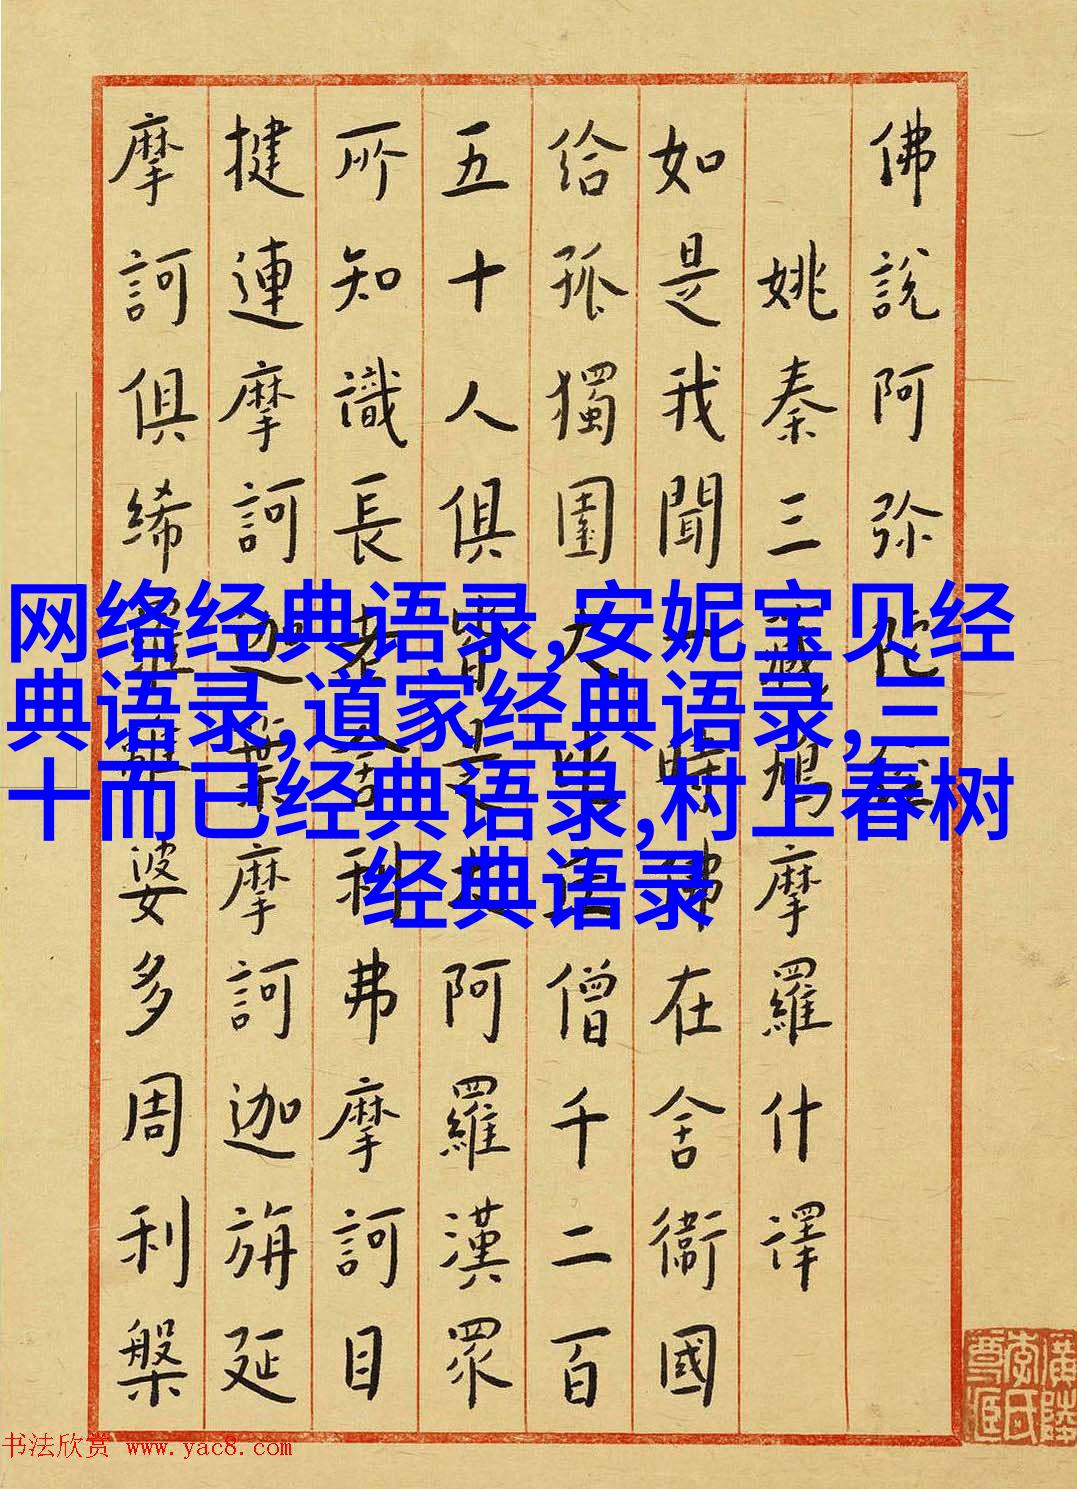 佛說阿弥陀經
姚秦三藏鳩摩羅什譯
如是我聞一時佛在舍衞國
給孤獨園大比丘僧千二百
五十人俱皆是大阿羅漢眾
所知識長老舍利弗摩訶目
揵連摩訶迦葉摩訶迦旃延
摩訶俱絺羅離婆多周利槃
网络经典语录,安妮宝贝经
典语录,道家经典语录,三
十而已经典语录,村上春树
经典语录
书法欣赏 www.yac8.com